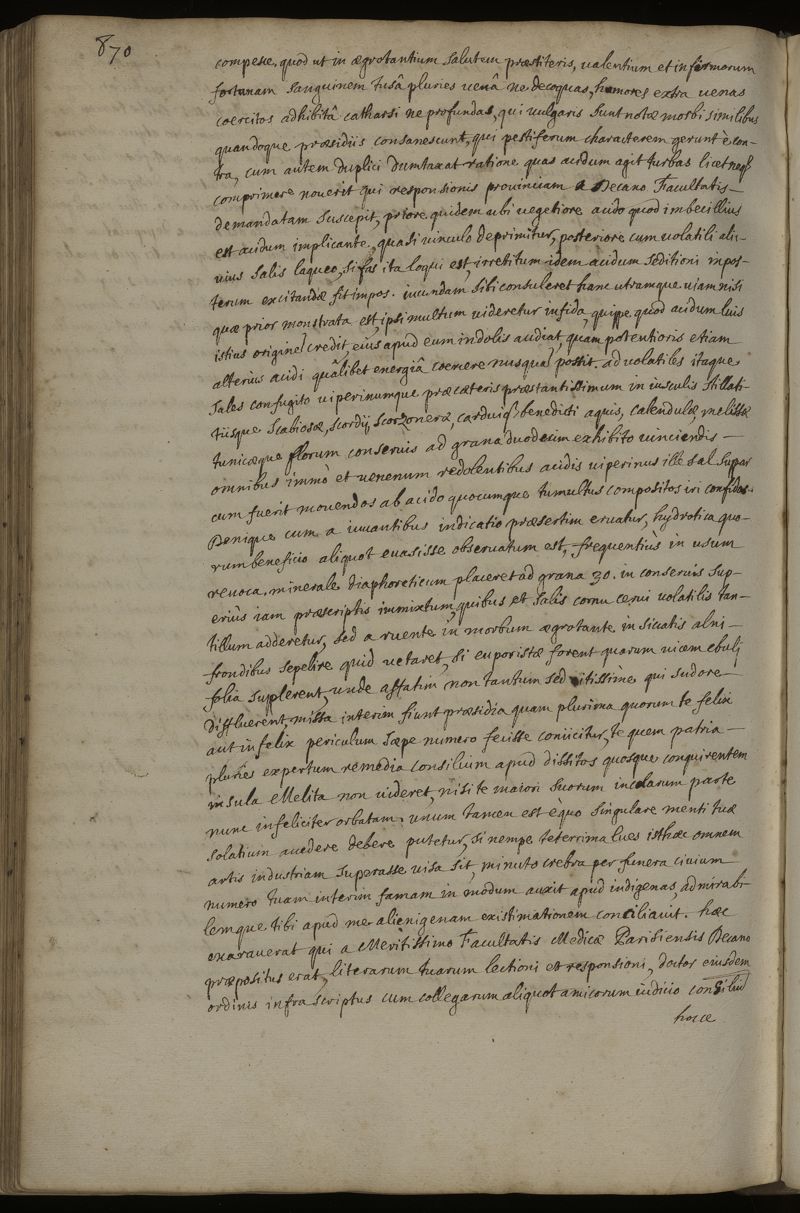 870
compesce, quod ut in ægrotantium salutem præstiteris, ualentium et infirmorum
fortunam sanguinem tusâ pluries uenâ ne decoquas, humores extra uenas
coercitos adhibitâ catharsi ne profundas, qui uulgaris sunt notæ morbi similibus
quandoque præsidiis consanescunt, qui pestiferum characterem gerunt è con-
tra, cum autem duplici dumtaxat ratione quas acidum agit turbas licet neqz
comprimere nouerit qui responsionis prouinciam a Decano Facultatis
demandatam suscepit, priore quidem ubi uegetiore acido quod imbecillius
est acidum implicante, quasi uinculo deprimitur, posteriore cum uolatili ali-
uius salis laqueo, si fas ita loqui est, irretitum idem acidum seditioni inpos-
terum excitandæ fit impos. iucundam sibi consuleret hanc utramque uiam nisi
quæ prior monstrata est, ipsi multum uideretur infida, quippe quod acidum luis
istius origine credit, eius apud eum indolis audiat, quam potentioris etiam
alterius acidi quâlibet energiâ coercere nusqua possit. ad uolatiles itaque
sales confugito uiperinumque præ cæteris præstantissimum in iusculis stillati-
tiisque scabiosæ, scordij scorzoneræ, carduiqz benedicti aquis, calendulæ, melissæ
tunicæque florum conseruis ad grana duodecim exhibito uinciendis
omnibus immò et uenenum redolentibus acidis uiperinus ille sal suppar
cum fuerit mouendos ab acido quocumque tumultus compositos iri confidas.
Denique cum a iuuantibus indicatio præsertim eruatur, hydrotica quo-
rum beneficio aliquot euasisse obseruatum est, frequentiùs in usum
reuoca, minerale diaphoreticum placeret ad grana 30. in conseruis sup-
eriùs iam præscriptis immixtum, quibus et salis cornu cerui uolatilis tan-
tillum adderetur, sed a ruente in morbum ægrotante in siccatis alni
frondibus sepelire quid uetaret, si euporistæ forent quarum uicem ebulj
folia supplerent, unde affatim non tantum sed citissimè qui sudore
diffluerent, missa interim fiunt præsidia quam plurima quorum te felix
aut infelix periculum sæpe numero fecisse coniicitur, te quem patria
pluries expertum remedia consilium apud dissitos quosque conquirentem
insula Melita non uideret, nisi te maiori suorum incolarum parte
nunc infeliciter orbatam. unum tamen est èquo singulare menti tuæ
solatium accedere debere putetur, si nempe teterrima lues isthæc omnem
artis industriam superasse uisa sit, minuto crebra per funera ciuium
numero tuam interim famam in modum auxit apud indigenas, admirabi-
lemque tibi apud me alienigenam existimationem conciliauit. hæc
exarauerat qui a Meritissimo Facultatis Medicæ Parisiensis Decano
præpositus erat, literarum tuarum lectioni et responsioni, doctor eiusdem
ordinis infra scriptus cum collegarum aliquot amicorum iudicio consiliu
hocce